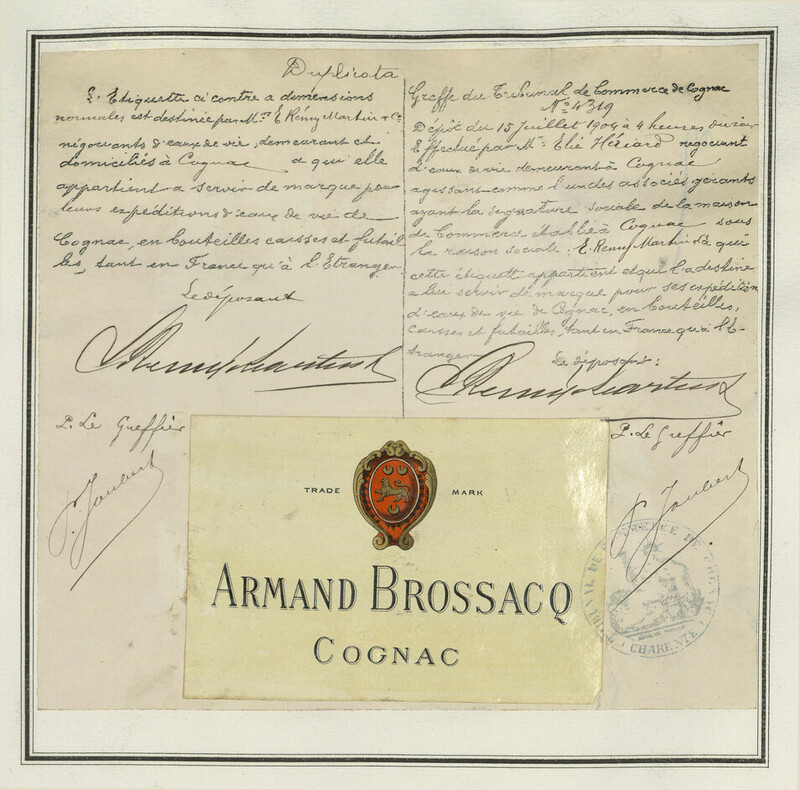 Duplicata
L'Etiquette ci contre a dimensions
normales est destinée par Mrs E. Rémy Martin & Co
négociants d'eaux de vie, demeurant et
domiciliés à Cognac a qui elle
appartient a servir de marque pour
leurs expéditions d'eaux de vie de
Cognac, en bouteilles caisses et futail
les, tant en France qu'à l'Etranger
Le déposant
E. Remy Martin & Co
P. Le Greffier
P. Joubert
Greffe du Tribunal de Commerce de Cognac
No 4319
Dépôt du 15 Juillet 1904 à 4 heures du soir
Effectué par Mr Elie Hériard negociant
d'eaux de vie demeurant à Cognac
agissant comme l'un des associés gérants
ayant la signature sociale de la maison
de Commerce établie à Cognac sous
la raison sociale: E. Remy Martin & a qui
cette étiquette appartient et qui l'a destine
a lui servir de marque pour ses expédition
d'eaux de vie de Cognac, en bouteilles,
caisses et futailles, tant en France qu'à l'E-
tranger
Le déposant:
E. Remy Martin & Co
P. Le Greffier
P. Joubert
TRADE MARK
ARMAND BROSSACQ
COGNAC
TRIBUNAL DE COMMERCE DE COGNAC
CHARENTE